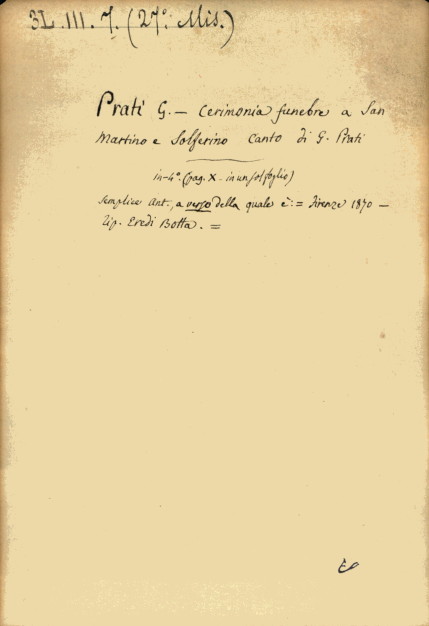 3L.III.7. (27º. Mis.)
Prati G. — Cerimonia funebre a San
Martino e Solferino Canto di G. Prati
in-4º. (pag. X - in un sol foglio)
Semplice Ant., a verso della quale è: = Firenze 1870 —
Tip. Eredi Botta. =